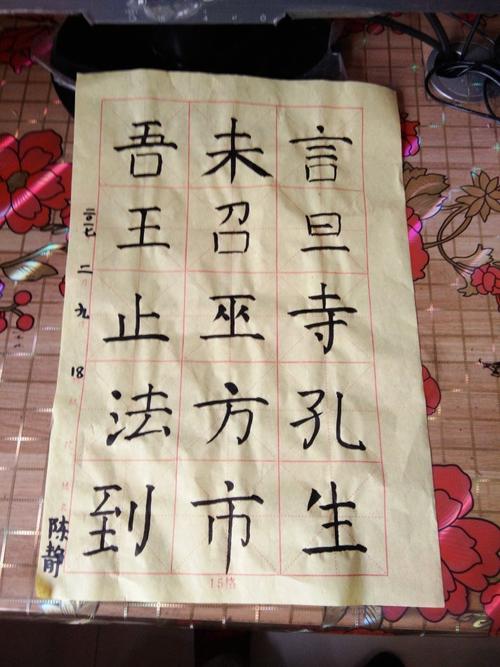 言旦寺孔生
未召巫方市
吾王止法到
二
九
18
陈静
15格